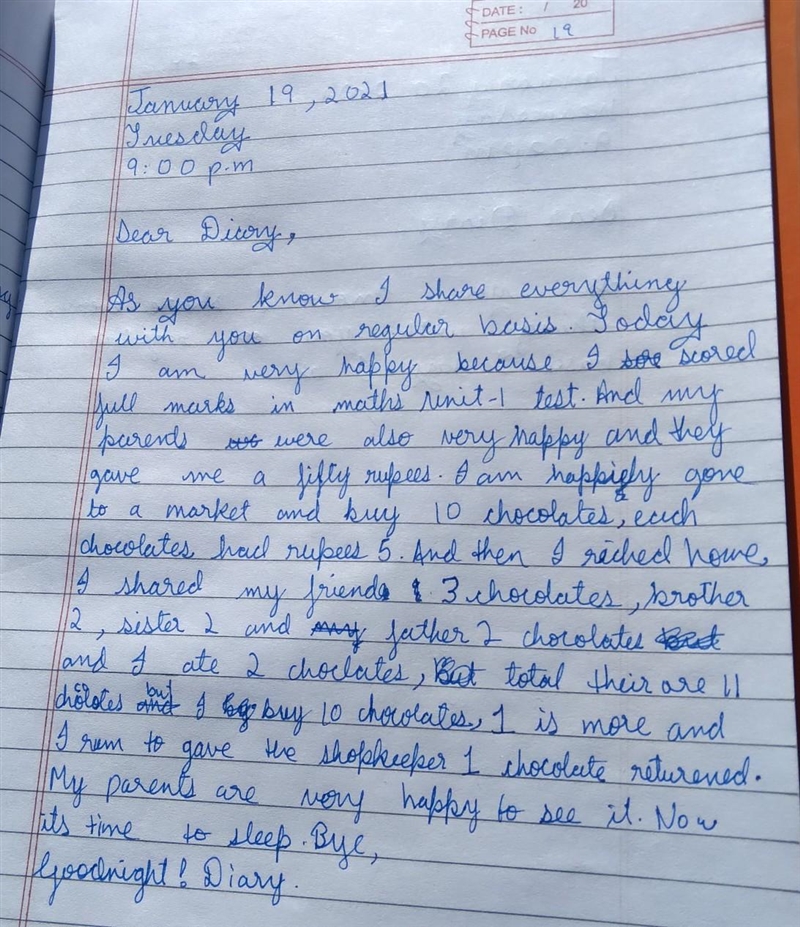 DATE: / 20
PAGE No 19
January 19, 2021
Tuesday
9:00 p.m
Dear Diary,
As you know I share everything
with you on regular basis. Today
I am very happy because I scored
full marks in maths unit-1 test. And my
parents were also very happy and they
gave me a fifty rupees. I am happily gone
to a market and buy 10 chocolates, each
chocolates had rupees 5. And then I reched home,
I shared my friends 3 chocolates, brother
2, sister 2 and father 2 chocolates
and I ate 2 choclates, total their are 11
choclotes but I buy 10 chocolates, 1 is more and
I rum to gave the shopkeeper 1 chocolate returened.
My parents are very happy to see it. Now
its time to sleep. Bye,
Goodnight! Diary.